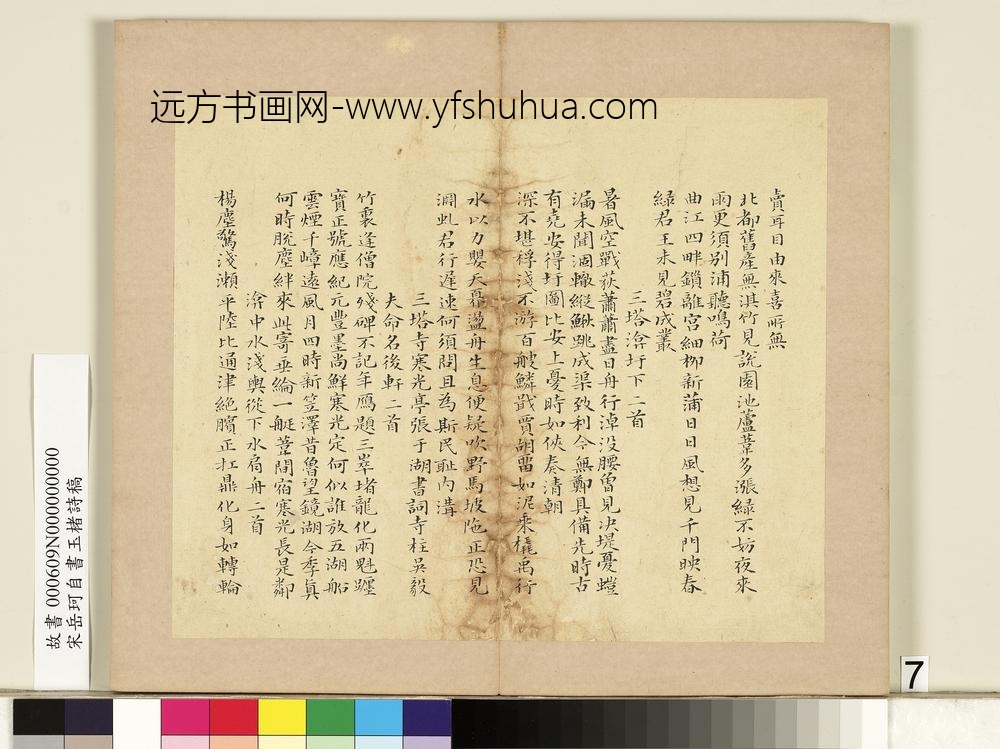 远方书画网-www.yfshuhua.com
賣耳目由來喜所無
北都舊產無淇竹見說園池蘆葦多漲綠不妨夜來
雨更須別浦聽鳴荷
曲江四畔鎖離宮細柳新蒲日日風想見千門映春
綠君王未見碧成叢
三塔渰圩下二首
暑風空戰荻蕭蕭盡日舟行淖没腰曾見决堤憂螘
漏未聞涸轍縱鰍跳成渠致利今無鄭具備先時古
有堯安得圩圖比安上憂時如俠奏清朝
深不堪桴淺不游百艘鱗戢賈胡留如泥乘橇禹行
水以力嬰天奡盪舟生息便疑吹野馬坡陁正恐見
涸虬君行遲速何須問且為斯民恥内溝
三塔寺寒光亭張于湖書詞寺柱吴毅
夫命名後軒二首
竹裏逢僧院殘碑不記年鴈題三峯堵龍化兩魁躔
寶正號應紀元豐墨尚鮮寒光定何似誰放五湖船
雲煙千嶂遠風月四時新笠澤昔魯望鏡湖今季真
何時脫塵絆來此寄垂綸一艇葦間宿寒光長是鄰
渰中水淺輿從下水肩舟二首
楊塵驚淺瀨平陸比通津絕臏正扛鼎化身如轉輪
故書000609N000000000
宋岳珂自書玉楮詩稿
7